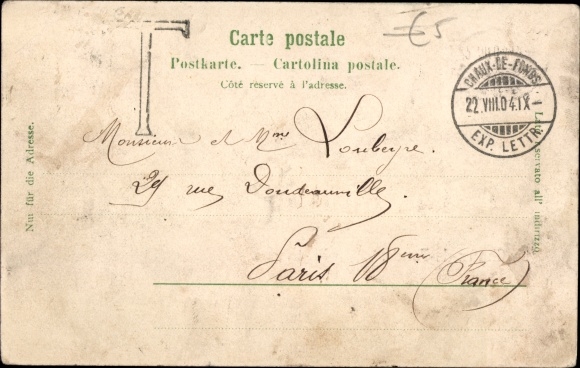 T
€5
Carte postale
Postkarte. — Cartolina postale.
Côté réservé à l'adresse.
CHAUX-DE-FONDS
22.VIII.04.IX
EXP. LETTR.
Nur für die Adresse.
Lato riservato all' indirizzo.
Monsieur et Mme Loubeyre
29 rue Doudeauville
Paris 18ème (France)